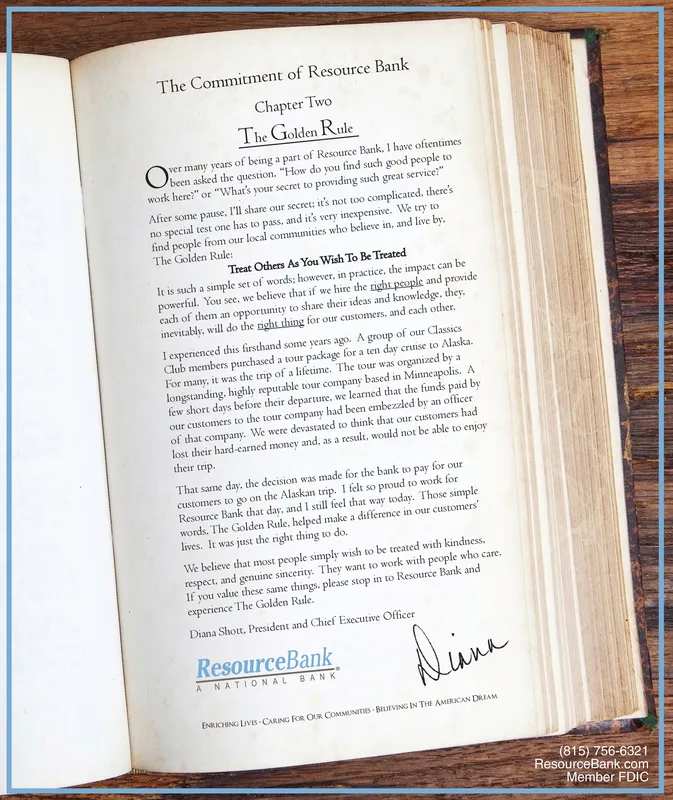 The Commitment of Resource Bank
Chapter Two
The Golden Rule
Over many years of being a part of Resource Bank, I have oftentimes
been asked the question, “How do you find such good people to
work here?” or “What’s your secret to providing such great service?”
After some pause, I’ll share our secret; it’s not too complicated, there’s
no special test one has to pass, and it’s very inexpensive. We try to
find people from our local communities who believe in, and live by,
The Golden Rule:
Treat Others As You Wish To Be Treated
It is such a simple set of words; however, in practice, the impact can be
powerful. You see, we believe that if we hire the right people and provide
each of them an opportunity to share their ideas and knowledge, they,
inevitably, will do the right thing for our customers, and each other.
I experienced this firsthand some years ago. A group of our Classics
Club members purchased a tour package for a ten day cruise to Alaska.
For many, it was the trip of a lifetime. The tour was organized by a
longstanding, highly reputable tour company based in Minneapolis. A
few short days before their departure, we learned that the funds paid by
our customers to the tour company had been embezzled by an officer
of that company. We were devastated to think that our customers had
lost their hard-earned money and, as a result, would not be able to enjoy
their trip.
That same day, the decision was made for the bank to pay for our
customers to go on the Alaskan trip. I felt so proud to work for
Resource Bank that day, and I still feel that way today. Those simple
words, The Golden Rule, helped make a difference in our customers’
lives. It was just the right thing to do.
We believe that most people simply wish to be treated with kindness,
respect, and genuine sincerity. They want to work with people who care.
If you value these same things, please stop in to Resource Bank and
experience The Golden Rule.
Diana Shott, President and Chief Executive Officer
Diana
ResourceBank®
A NATIONAL BANK
ENRICHING LIVES · CARING FOR OUR COMMUNITIES · BELIEVING IN THE AMERICAN DREAM
(815) 756-6321
ResourceBank.com
Member FDIC